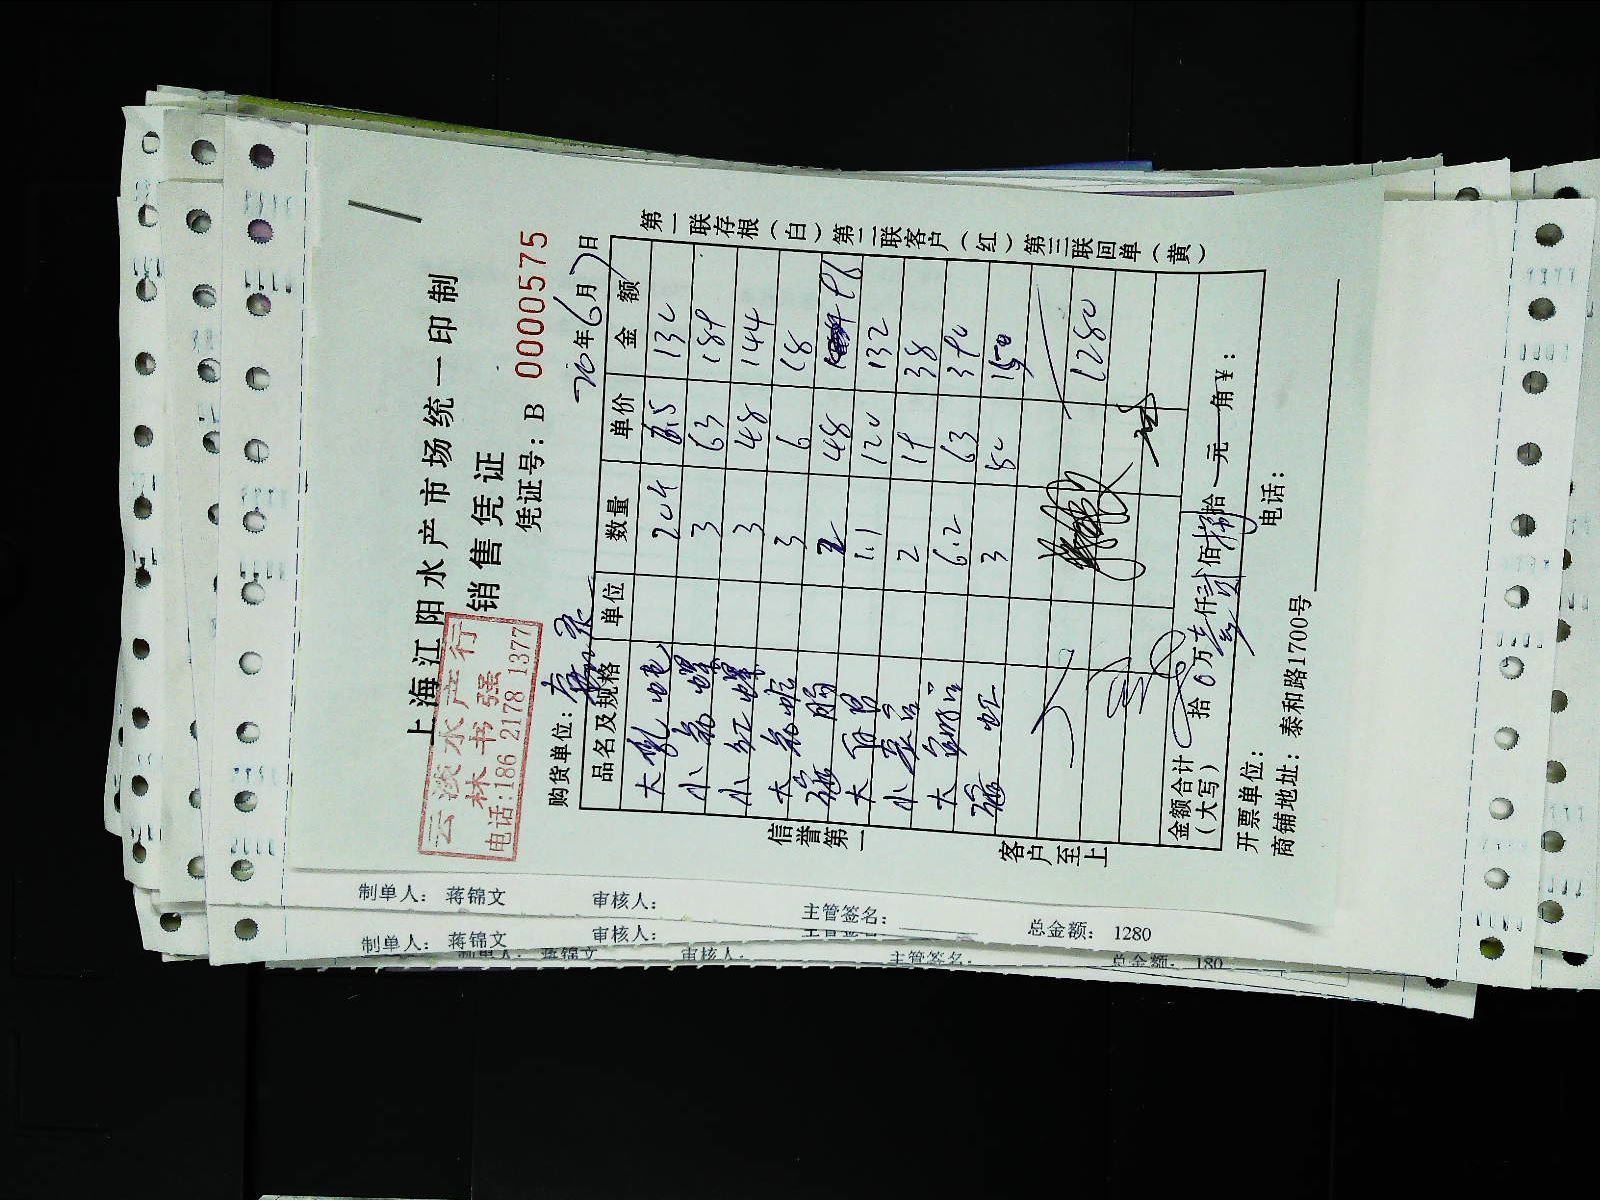 上海江阳水产市场统一印制
销售凭证
凭证号：B 0000575
云淡水产行
林书强
电话:186 2178 1377
购货单位：
20年6月7日
品名及规格 单位 数量 单价 金额
大 204 6.5 132
小 3 63 189
小红螺 3 48 144
大 3 6 18
2 48 96
大 1.1 120 132
小 2 19 38
大 6.2 63 390
3 50 150
1280
金额合计（大写） 拾 0 万 壹 仟 贰 佰 捌 拾 元 角 ¥：
开票单位： 电话：
商铺地址：泰和路1700号
信誉第一
客户至上
第一联存根（白）第二联客户（红）第三联回单（黄）
制单人： 蒋锦文 审核人： 主管签名： 总金额： 1280
制单人： 蒋锦文 审核人： 主管签名
制单人： 蒋锦文 审核人： 主管签名： 总金额： 180